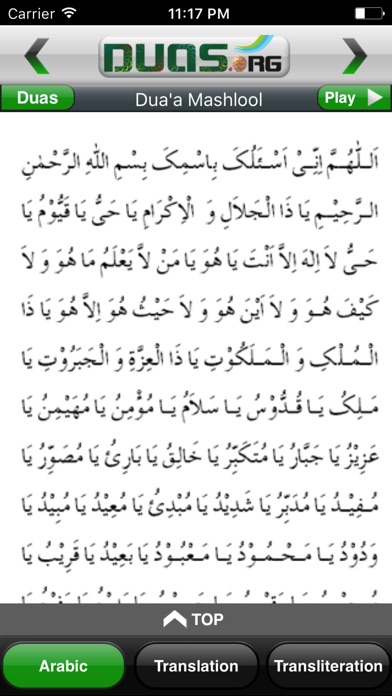 Carrier 11:17 PM
DUAS.ORG
Duas Dua'a Mashlool Play
اَللّٰهُمَّ اِنِّیْ اَسْئَلُکَ بِاسْمِکَ بِسْمِ اللّٰهِ الرَّحْمٰنِ
الرَّحِیْمِ یَا ذَا الْجَلَالِ وَ الْاِکْرَامِ یَا حَیُّ یَا قَیُّوْمُ یَا
حَیُّ لاَ اِلٰهَ اِلاَّ اَنْتَ یَا هُوَ یَا مَنْ لاَّ یَعْلَمُ مَا هُوَ وَ لاَ
کَیْفَ هُوَ وَ لاَ اَیْنَ هُوَ وَ لاَ حَیْثُ هُوَ اِلاَّ هُوَ یَا ذَا
الْمُلْکِ وَ الْمَلَکُوْتِ یَا ذَا الْعِزَّةِ وَ الْجَبَرُوْتِ یَا
مَلِکُ یَا قُدُّوْسُ یَا سَلاَمُ یَا مُؤْمِنُ یَا مُهَیْمِنُ یَا
عَزِیْزُ یَا جَبَّارُ یَا مُتَکَبِّرُ یَا خَالِقُ یَا بَارِئُ یَا مُصَوِّرُ یَا
مُفِیْدُ یَا مُدَبِّرُ یَا شَدِیْدُ یَا مُبْدِئُ یَا مُعِیْدُ یَا مُبِیْدُ یَا
وَدُوْدُ یَا مَحْمُوْدُ یَا مَعْبُوْدُ یَا بَعِیْدُ یَا قَرِیْبُ یَا
TOP
Arabic Translation Transliteration